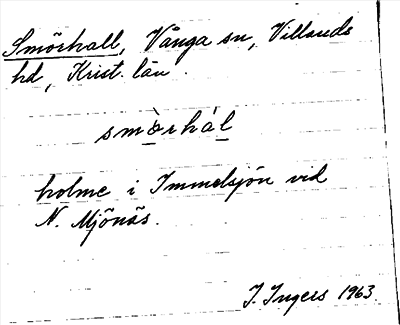 Smörhall, Vånga sn, Villands
hd, Krist. län.
smö̀rhál
holme i Immelsjön vid
N. Mjönäs.
I. Ingers 1963.